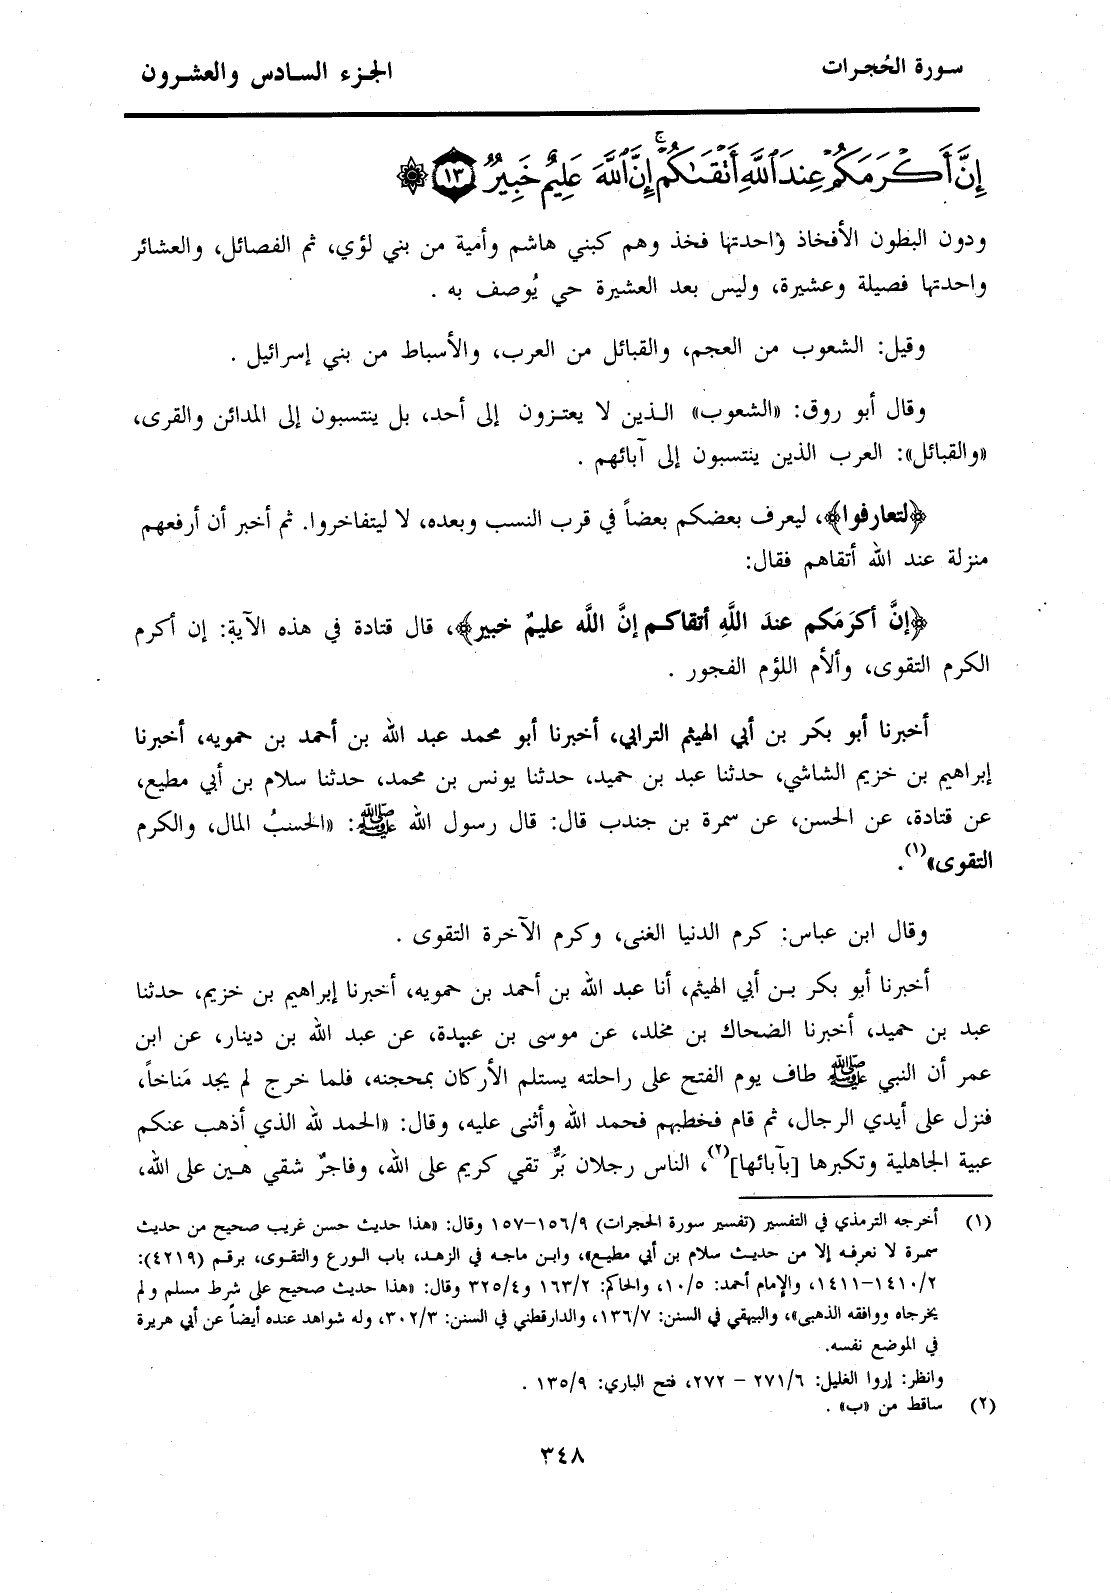 سورة الحُجرات
الجزء السادس والعشرون
إِنَّ أَكْرَمَكُمْ عِندَ ٱللَّهِ أَتْقَىٰكُمْ ۚ إِنَّ ٱللَّهَ عَلِيمٌ خَبِيرٌ ١٣
ودون البطون الأفخاذ واحدتها فخذ وهم كبني هاشم وأمية من بني لؤي، ثم الفصائل، والعشائر
واحدتها فصيلة وعشيرة، وليس بعد العشيرة حي يُوصف به .
وقيل: الشعوب من العجم، والقبائل من العرب، والأسباط من بني إسرائيل .
وقال أبو روق: «الشعوب» الذين لا يعتزون إلى أحد، بل ينتسبون إلى المدائن والقرى،
«والقبائل»: العرب الذين ينتسبون إلى آبائهم .
﴿لتعارفوا﴾، ليعرف بعضكم بعضاً في قرب النسب وبعده، لا ليتفاخروا. ثم أخبر أن أرفعهم
منزلة عند الله أتقاهم فقال:
﴿إنَّ أكرَمَكم عندَ اللَّهِ أتقاكم إنَّ اللَّه عليمٌ خبير﴾، قال قتادة في هذه الآية: إن أكرم
الكرم التقوى، وألأم اللؤم الفجور .
أخبرنا أبو بكر بن أبي الهيثم الترابي، أخبرنا أبو محمد عبد الله بن أحمد بن حمويه، أخبرنا
إبراهيم بن خزيم الشاشي، حدثنا عبد بن حميد، حدثنا يونس بن محمد، حدثنا سلام بن أبي مطيع،
عن قتادة، عن الحسن، عن سمرة بن جندب قال: قال رسول الله ﷺ: «الحسبُ المال، والكرم
التقوى»(١).
وقال ابن عباس: كرم الدنيا الغنى، وكرم الآخرة التقوى .
أخبرنا أبو بكر بن أبي الهيثم، أنا عبد الله بن أحمد بن حمويه، أخبرنا إبراهيم بن خزيم، حدثنا
عبد بن حميد، أخبرنا الضحاك بن مخلد، عن موسى بن عبيدة، عن عبد الله بن دينار، عن ابن
عمر أن النبي ﷺ طاف يوم الفتح على راحلته يستلم الأركان بمحجنه، فلما خرج لم يجد مَناخاً،
فنزل على أيدي الرجال، ثم قام فخطبهم فحمد الله وأثنى عليه، وقال: «الحمد لله الذي أذهب عنكم
عبية الجاهلية وتكبرها [بآبائها](٢)، الناس رجلان بَرٌّ تقي كريم على الله، وفاجرٌ شقي هين على الله،
(١) أخرجه الترمذي في التفسير (تفسير سورة الحجرات) ٩/١٥٦-١٥٧ وقال: «هذا حديث حسن غريب صحيح من حديث
سمرة لا نعرفه إلا من حديث سلام بن أبي مطيع»، وابن ماجه في الزهد، باب الورع والتقوى، برقم (٤٢١٩):
٢/١٤١٠-١٤١١، والإمام أحمد: ٥/١٠، والحاكم: ٢/١٦٣ و٤/٣٢٥ وقال: «هذا حديث صحيح على شرط مسلم ولم
يخرجاه ووافقه الذهبي»، والبيهقي في السنن: ٧/١٣٦، والدارقطني في السنن: ٣/٣٠٢، وله شواهد عنده أيضاً عن أبي هريرة
في الموضع نفسه.
وانظر: إروا الغليل: ٦/٢٧١ – ٢٧٢، فتح الباري: ٩/١٣٥ .
(٢) ساقط من «ب» .
٣٤٨